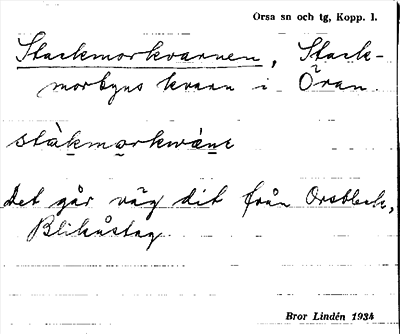 Orsa sn och tg, Kopp. l.
Stackmorkvarnen, Stack-
morbyns kvarn i Öran.
stàkmorkwánẹ
Det går väg dit från Orsbleck,
Blikåstag
Bror Lindén 1934